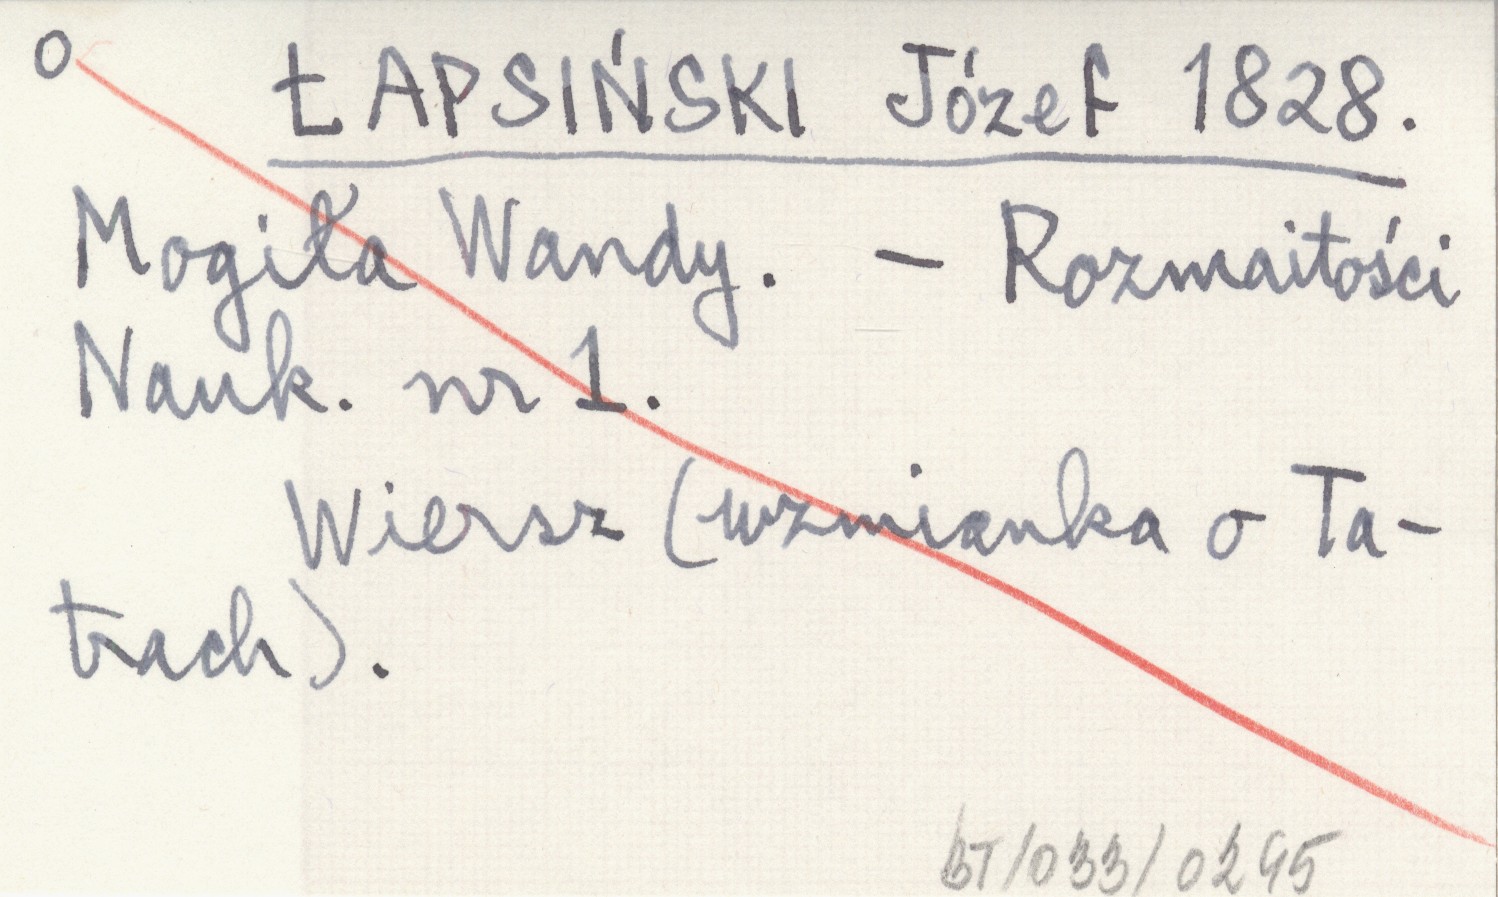 o ŁAPSIŃSKI Józef 1828.
Mogiła Wandy. - Rozmaitości
Nauk. nr 1.
Wiersz (wzmianka o Ta-
trach).
BT/033/0295